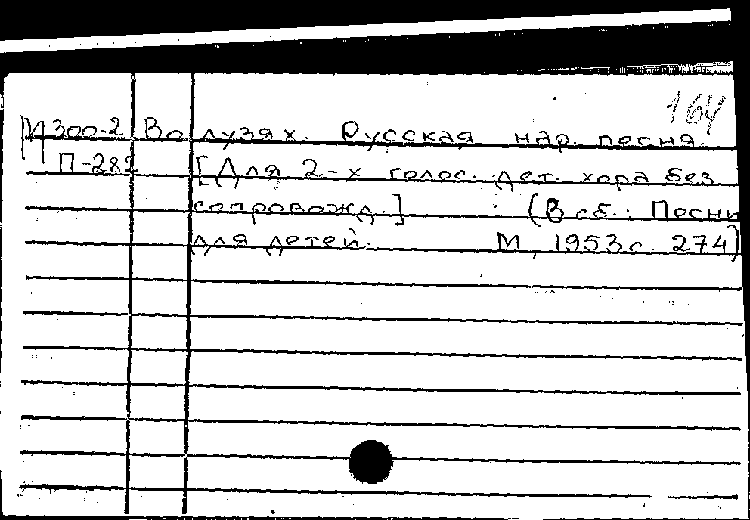 164
М300-2 Во лузях. Русская нар. песня.
П-282 [Для 2-х голос. дет. хора без
сопровожд.] : (В сб.: Песни
для детей. М, 1953 с. 274)